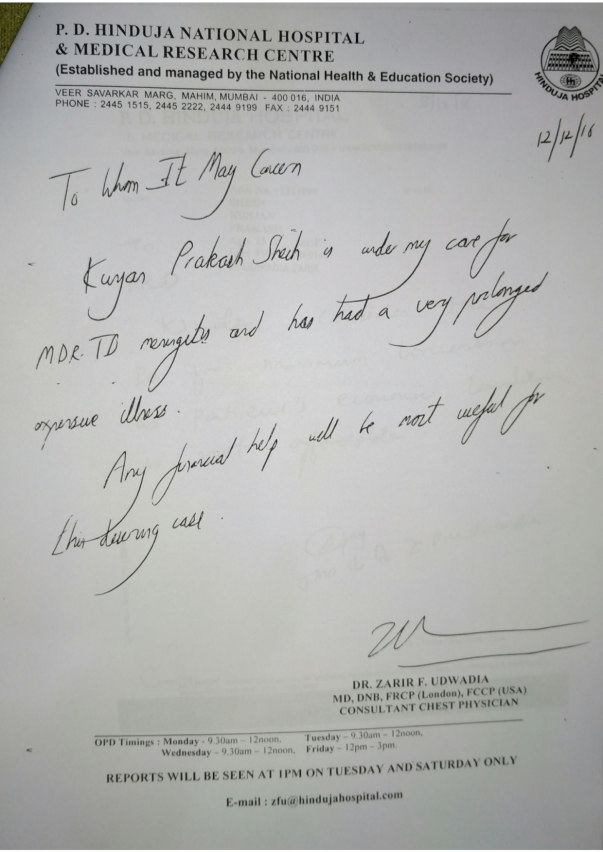 P. D. HINDUJA NATIONAL HOSPITAL
& MEDICAL RESEARCH CENTRE
(Established and managed by the National Health & Education Society)
VEER SAVARKAR MARG, MAHIM, MUMBAI - 400 016, INDIA
PHONE : 2445 1515, 2445 2222, 2444 9199 FAX : 2444 9151
HINDUJA HOSPITAL
12/12/16
To Whom It May Concern
Prakash is under my care for
MDR. TB meningitis and has had a very prolonged
expensive illness.
Any financial help will be most useful for
this deserving case.
DR. ZARIR F. UDWADIA
MD, DNB, FRCP (London), FCCP (USA)
CONSULTANT CHEST PHYSICIAN
OPD Timings : Monday - 9.30am – 12noon, Tuesday – 9.30am – 12noon,
Wednesday – 9.30am – 12noon, Friday – 12pm – 3pm
REPORTS WILL BE SEEN AT 1PM ON TUESDAY AND SATURDAY ONLY
E-mail : zfu@hindujahospital.com